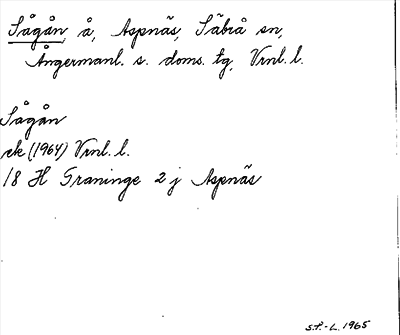 Sågån, å, Aspnäs, Säbrå sn,
Ångermanl. s. doms. tg, Vrnl. l.
Sågån
ek (1964) Vrnl. l.
18 H Graninge 2 j Aspnäs
S.F.-L. 1965